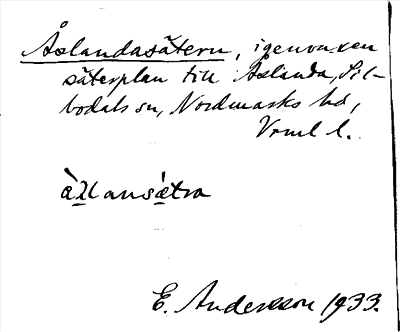 Åslandasätern, igenvuxen
säterplan till Åslanda, Sil-
bodals sn, Nordmarks hd,
Vrml l.
E. Andersson 1933.